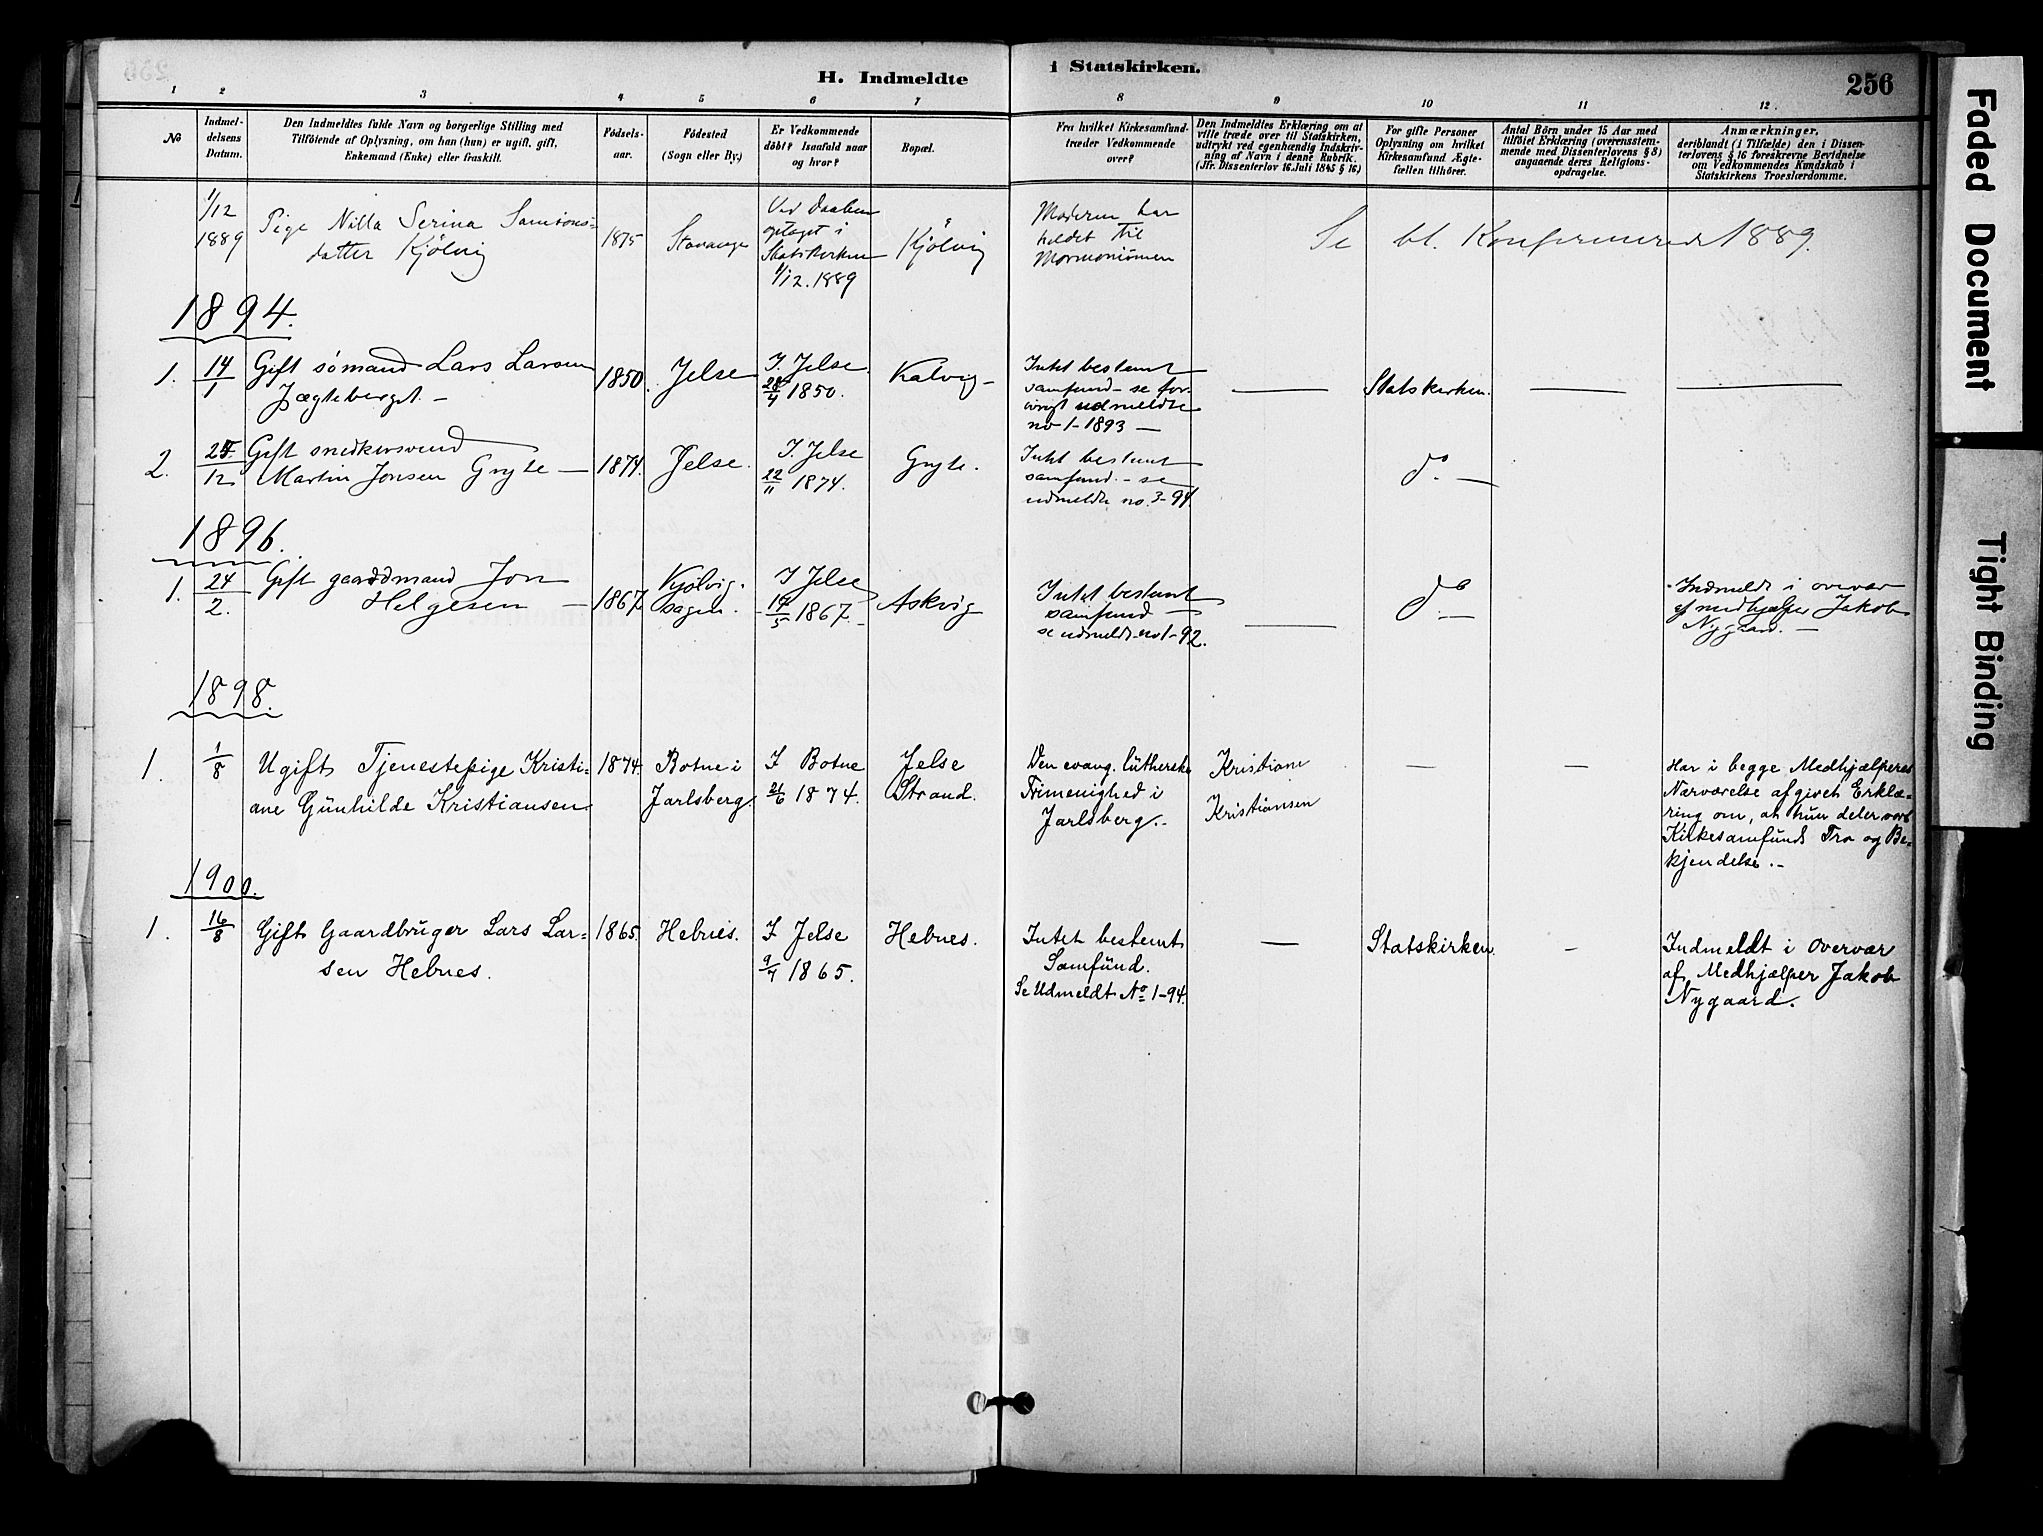 H. Indmeldte i Statskirken.
256
1 2 3 4 5 6 7 8 9 10 11 12.
No
Indmel-
delsens
Datum.
Den Indmeldtes fulde Navn og borgerlige Stilling med
Tilföiende af Oplysning, om han (hun) er ugift, gift,
Enkemand (Enke) eller fraskilt.
Födsels-
aar.
Födested
(Sogn eller By.)
Er Vedkommende
döbt? Isaafald naar
og hvor?
Bopæl.
Fra hvilket Kirkesamfund
træder Vedkommende
over?
Den Indmeldtes Erklæring om at
ville træde over til Statskirken,
udtrykt ved egenhændig Indskriv-
ning af Navn i denne Rubrik.
(Jfr. Dissenterlov 16. Juli 1845 § 16)
For gifte Personer
Oplysning om hvilket
Kirkesamfund Ægte-
fællen tilhörer.
Antal Börn under 15 Aar med
tilföiet Erklæring (overensstem-
mende med Dissenterlovens § 8)
angaaende deres Religions-
opdragelse.
Anmærkninger,
deriblandt (i Tilfælde) den i Dissen-
terlovens § 16 foreskrevne Bevidnelse
om Vedkommendes Kundskab i
Statskirkens Troeslærdomme.
1/12
1889
Pige Nilla Serina Samsons-
datter Kjölvig
1875
Stavanger
Ved Daaben
optaget i
Statskirken
1/12. 1889
Kjölvig
Moderen har
holdet til
Mormonismen
Se bl. Konfirmerede 1889.
1894.
1.
14/1
Gift sömand Lars Larsen
Jægteberget. –
1850.
Jelse
I. Jelse
28/4 1850.
Kalvig –
Intet bestemt
samfund – se for-
övrigt udmeldte
no 1–1893 –
—
Statskirken.
—
—
2.
25/12
Gift snedkersvend
Martin Jonsen Gryte —
1874.
Jelse.
I. Jelse
22/11 1874.
Gryte.
Intet bestemt
samfund. – se
udmeldte no. 3–94.
do. —
1896.
1.
24/2.
Gift gaardmand Jon
Helgesen —
1867
Kjölvig-
sogn.
I Jelse
17/5 1867. –
Askvig
Intet bestemt
samfund —
se udmeldt no 1–92.
—
do. —
Indmeldt i overvær
af medhjælper Jakob
Nygaard. —
1898.
1.
1/8
Ugift Tjenestepige Kristi-
ane Gunhilde Kristiansen
1874.
Botne i
Jarlsberg.
I Botne
21/6 1874.
Jelse
Strand.
Den evang. lutherske
Frimenighed i
Jarlsberg. –
Kristiane
Kristiansen
—
—
Har i begge Medhjælperes
Nærværelse afgivet Erklæ-
ring om, at hun deler vort
Kirkesamfunds Tro og Be-
kjendelse. –
1900.
1.
16/8
Gift Gaardbruger Lars Lar-
sen Hebnes.
1865.
Hebnes.
I Jelse
9/7 1865.
Hebnes.
Intet bestemt
Samfund.
Se Udmeldt No 1–94.
—
Statskirken.
–
Indmeldt i Overvær
af Medhjælper Jakob
Nygaard.
Faded Document
Tight Binding